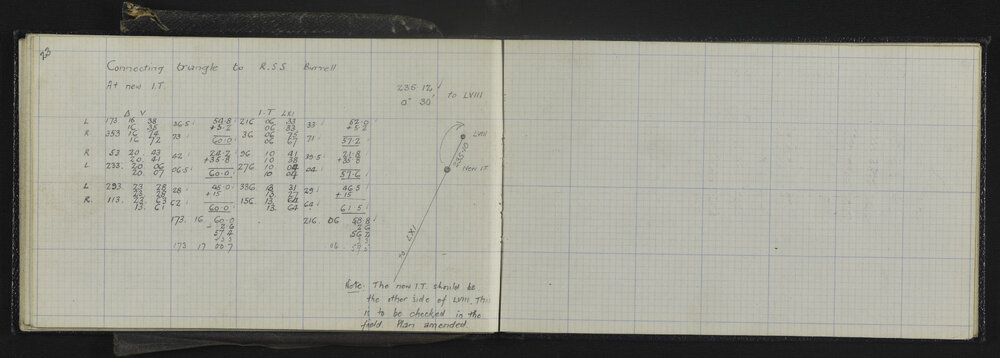 23
Connecting triangle to R.S.S. Burrell
At new I.T.
236 12'
0° 30' to LVIII
Δ V I.T LXI
L 173 16 38 36.5 54.8 216 06 33 33 52.0
16 35 +5.2 06 33 +5.2
R 353 16 74 73 60.0 36 06 75 71 57.2
16 72 06 67
R 53 20 43 42 24.2 96 10 41 39.5 21.8
20 41 +35.8 10 38 +35.8
L 233 20 06 06.5 60.0 276 10 04 04 57.6
20 07 10 04
L 293 23 28 28 45.0 336 13 31 29 46.5
23 28 +15 13 27 +15
R 113 23 63 62 60.0 156 13 64 64 61.5
13 61 13 64
173 16 60.0 216 06 58.8
57.4
173 17 00.7 06
LVIII
235.10
New I.T.
To LXI
Note: The new I.T. should be
the other side of LVIII. This
is to be checked in the
field Plan amended.